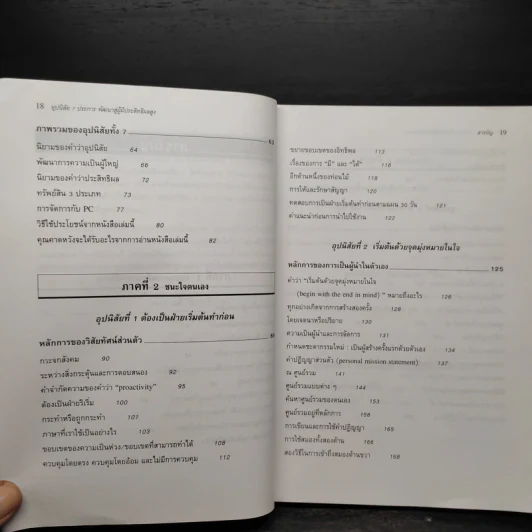 18 อุปนิสัย 7 ประการ พัฒนาสู่ผู้มีประสิทธิผลสูง
ภาพรวมของอุปนิสัยทั้ง 7
นิยามของคำว่าอุปนิสัย 64
พัฒนาการความเป็นผู้ใหญ่ 66
นิยามของคำว่าประสิทธิผล 72
ทรัพย์สิน 3 ประเภท 73
การจัดการกับ PC 77
วิธีใช้ประโยชน์จากหนังสือเล่มนี้ 80
คุณคาดหวังจะได้รับอะไรจากการอ่านหนังสือเล่มนี้ 82
ภาคที่ 2 ชนะใจตนเอง
อุปนิสัยที่ 1 ต้องเป็นฝ่ายเริ่มต้นทำก่อน
หลักการของวิสัยทัศน์ส่วนตัว
กระจกสังคม 90
ระหว่างสิ่งกระตุ้นและการตอบสนอง 92
คำจำกัดความของคำว่า "proactivity" 95
ต้องเป็นฝ่ายริเริ่ม 100
กระทำหรือถูกกระทำ 101
ภาษาที่เราใช้เป็นอย่างไร 103
ขอบเขตของความเป็นห่วง/ขอบเขตที่สามารถทำได้ 108
ควบคุมโดยตรง ควบคุมโดยอ้อม และไม่มีการควบคุม 112
สารบัญ 19
ขยายขอบเขตของอิทธิพล 113
เรื่องของการ "มี" และ "ได้" 116
อีกด้านหนึ่งของท่อนไม้ 118
การให้และรักษาสัญญา 120
ทดสอบการเป็นฝ่ายเริ่มต้นทำก่อนตามแผน 30 วัน 121
คำแนะนำก่อนการนำไปใช้งาน 122
อุปนิสัยที่ 2 เริ่มต้นด้วยจุดมุ่งหมายในใจ
หลักการของการเป็นผู้นำในตัวเอง 125
คำว่า "เริ่มต้นด้วยจุดมุ่งหมายในใจ
(begin with the end in mind) " หมายถึงอะไร 126
ทุกอย่างเกิดจากการสร้างสองครั้ง 128
โดยเจตนาหรือปริยาย 130
ความเป็นผู้นำและการจัดการ 131
กำหนดชะตากรรมใหม่ : เป็นผู้สร้างครั้งแรกด้วยตัวเอง 134
คำปฏิญญาส่วนตัว (personal mission statement) 137
ณ ศูนย์รวม 141
ศูนย์รวมแบบต่าง ๆ 144
ค้นหาศูนย์รวมของคุณเอง 153
ศูนย์รวมอยู่ที่หลักการ 158
การเขียนและการใช้คำปฏิญญา 165
การใช้สมองทั้งสองด้าน 166
สองวิธีในการเข้าถึงสมองด้านขวา 168